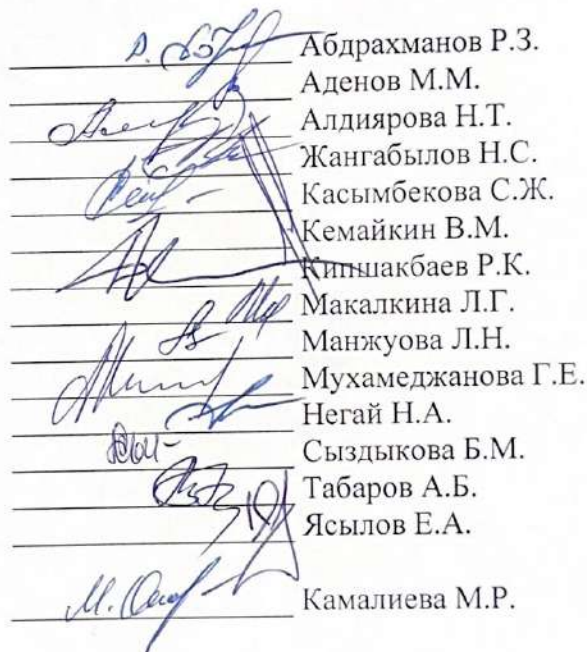 Абдрахманов Р.З.
Аденов М.М.
Алдиярова Н.Т.
Жангабылов Н.С.
Касымбекова С.Ж.
Кемайкин В.М.
Кипшакбаев Р.К.
Макалкина Л.Г.
Манжуова Л.Н.
Мухамеджанова Г.Е.
Негай Н.А.
Сыздыкова Б.М.
Табаров А.Б.
Ясылов Е.А.
Камалиева М.Р.